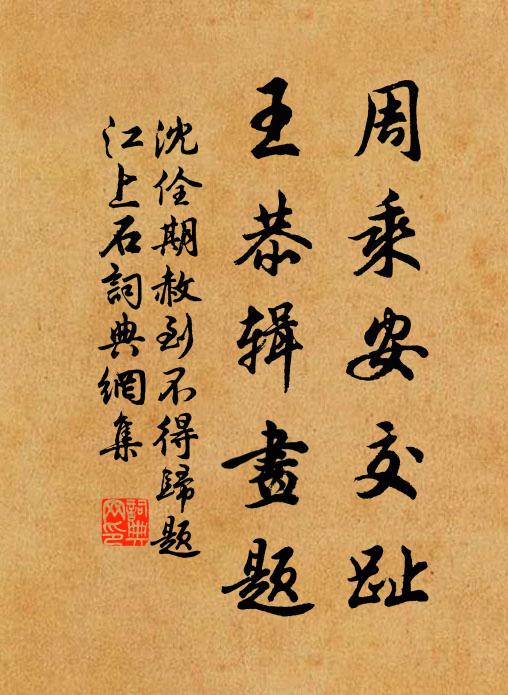 周乘安交趾
王恭辑畫题
沈佺期赦到不得歸题
江上石詞典網集
詞典
网印